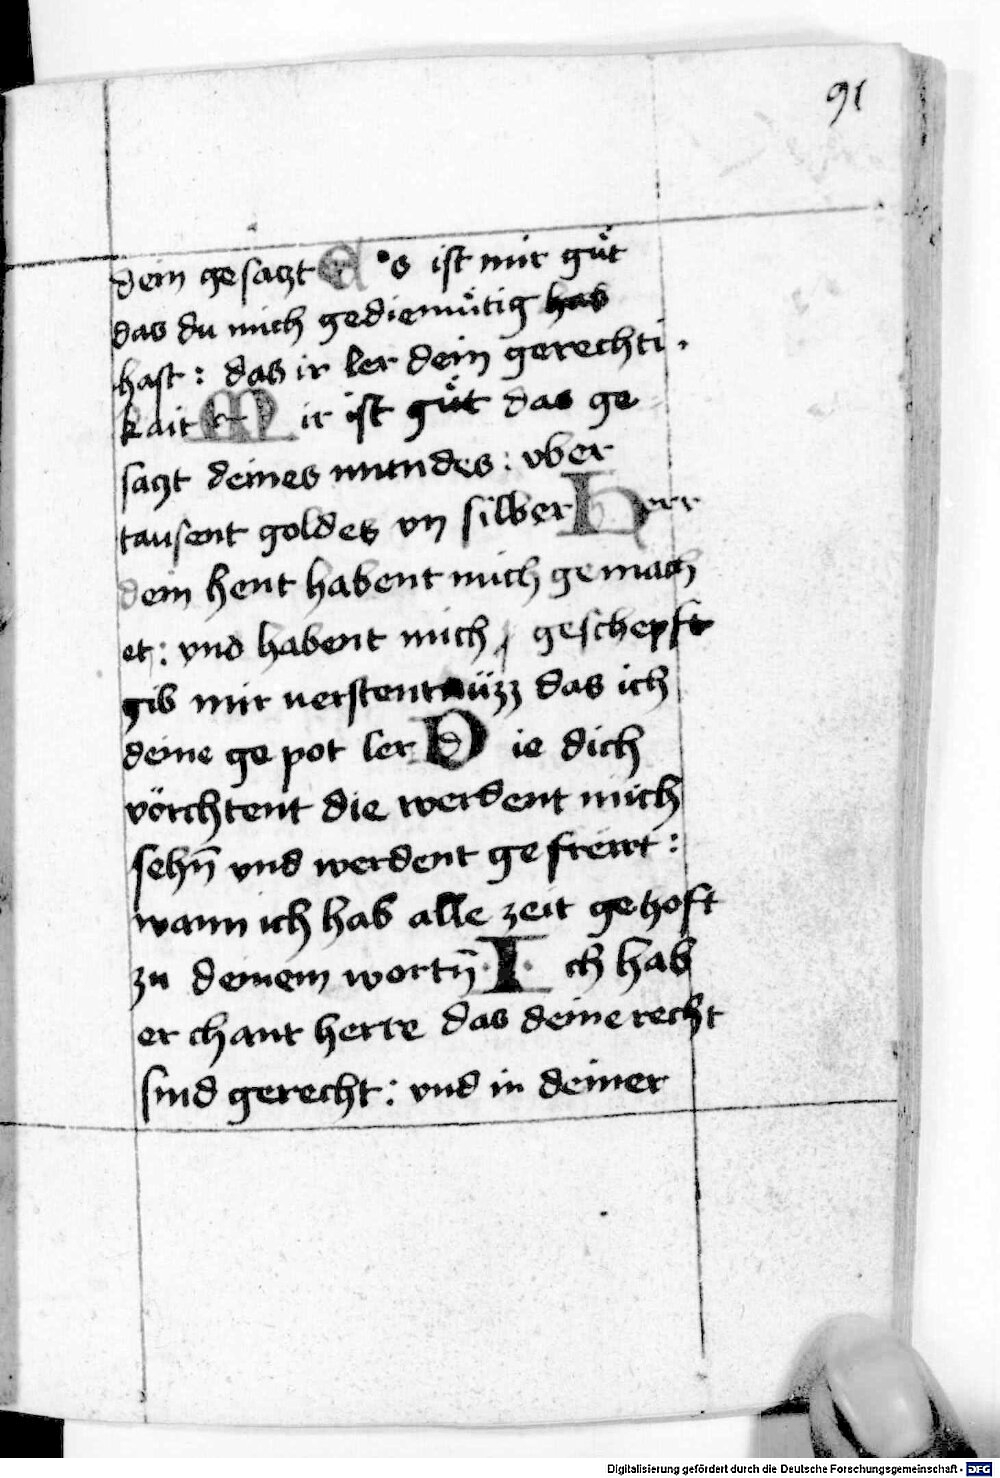 91
dein gesaczt Es ist mir guͤt
das du mich gediemuͤtig has
hast : das ir ler dein gerechti
kait Mir ist guͤt das ge
saczt deines mundes : vber
tausent goldes vn silber Herr
dein hent habent mich gemach
et : vnd habent mich geschepft
gib mir verstentnüzz das ich
deine ge pot ler Die dich
vörchtent die werdent mich
sehn̄ vnd werdent gefrewt :
wann ich hab alle zeit gehoft
zu deinem wortn̄ · Ich hab
er chant herre das deine recht
sind gerecht : vnd in deiner
Digitalisierung gefördert durch die Deutsche Forschungsgemeinschaft - DFG